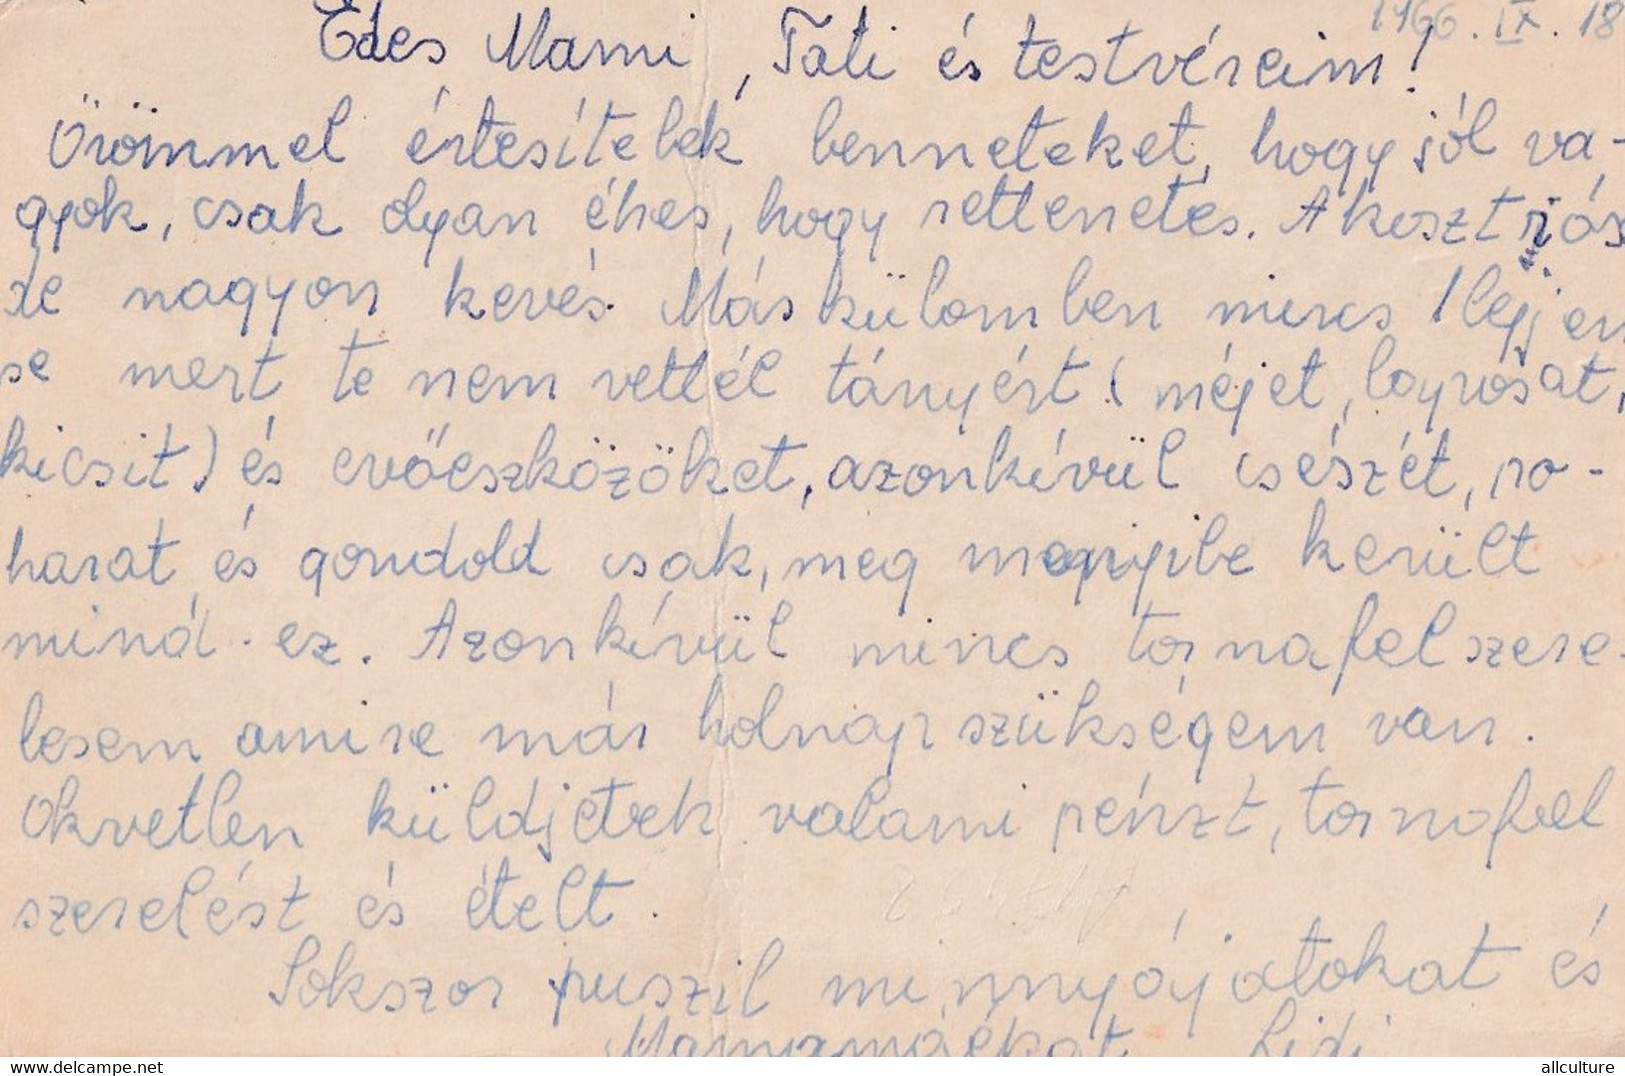 1966. IX. 18
Édes Mami, Tati és testvéreim!
Örömmel értesítelek benneteket, hogy jól va-
gyok, csak olyan éhes, hogy rettenetes. A koszt jó
de nagyon kevés. Máskülomben nincs
se mert te nem vettél tányért (méjet, lapósat,
kicsit) és evőeszközöket, azonkívül csészét, po-
harat és gondold csak, meg menyibe került
mind ez. Azonkívül nincs tornafelszere-
lesem amire már holnap szükségem van.
Okvetlen küldjetek valami pénzt, tornafel
szerelést és ételt.
Sokszor puszil minnyájatokat és
Mamamáékat Lidi
www.delcampe.net
allculture